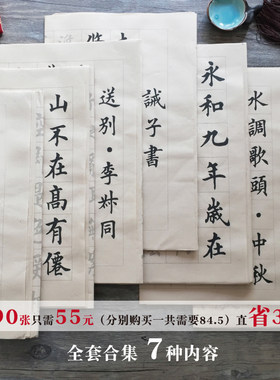 水調歌頭·中秋
永和九年歲在
誡子書
送别·李叔同
山不在高有僊
0张只需55元（分别购买一共需要84.5）直省3
全套合集 7种内容